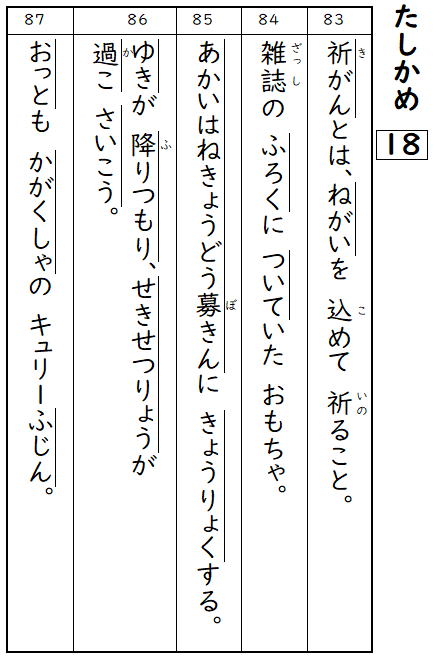 たしかめ
18
83
祈がんとは、ねがいを 込めて 祈ること。
き
こ
いの
84
雑誌の ふろくに ついていた おもちゃ。
ざっ し
85
あかいはねきょうどう募きんに きょうりょくする。
ぼ
86
ゆきが 降りつもり、せきせつりょうが
ふ
過こ さいこう。
か
87
おっとも かがくしゃの キュリーふじん。